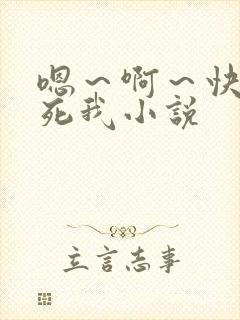 嗯～啊～快
死我小说
立言志事